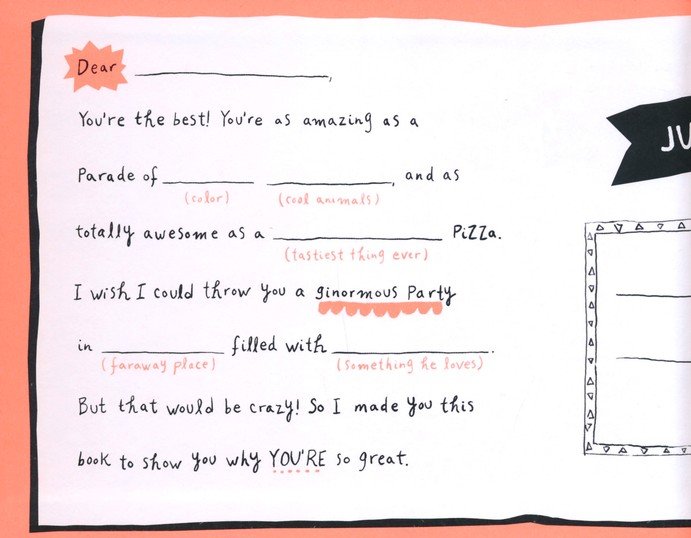 Dear ____________________,
You're the best! You're as amazing as a
Parade of __________ ______________, and as
(color) (cool animals)
totally awesome as a ___________________ PiZZa.
(tastiest thing ever)
I wish I could throw you a ginormous Party
in ______________ filled with __________________.
(faraway place) (something he loves)
But that would be crazy! So I made you this
book to show you why YOU'RE so great.
JU